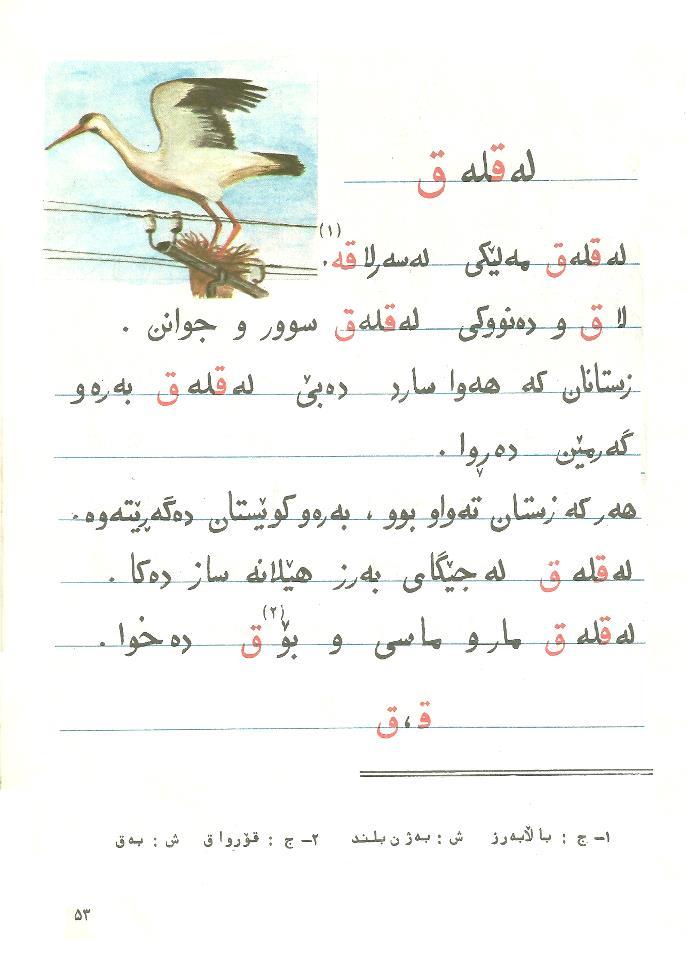 لەقلەق
لەقلەق مەلێکی لەسەرلاقە.(۱)
لاق و دەنووکی لەقلەق سوور و جوانن .
زستانان کە هەوا سارد دەبێ لەقلەق بەرەو
گەرمێن دەڕوا .
هەرکە زستان تەواو بوو ، بەرەو کوێستان دەگەڕێتەوە.
لەقلەق لەجێگای بەرز هێلانە ساز دەکا .
لەقلەق مارو ماسی و بۆق(۲) دەخوا .
ق،ق
۱- ج : باڵابەرز ش : بەژن بلند ۲- ج : قۆرواق ش : بەق
۵۳